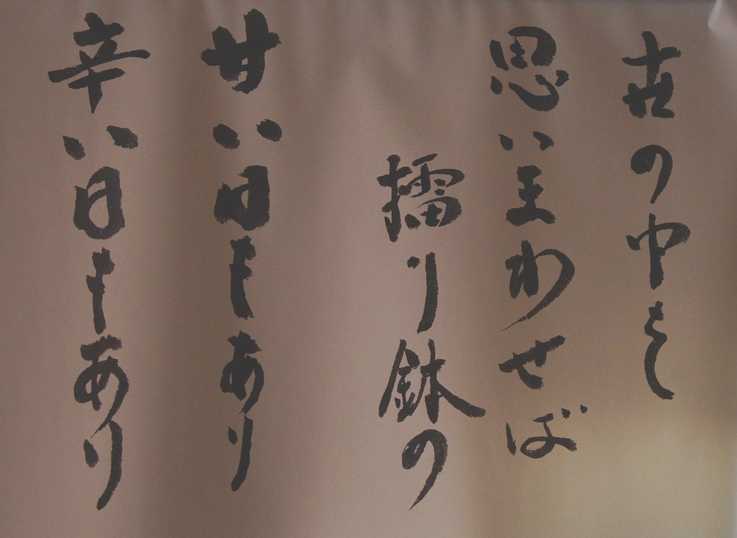 世の中を
思いまわせば
擂り鉢の
甘い日もあり
辛い日もあり